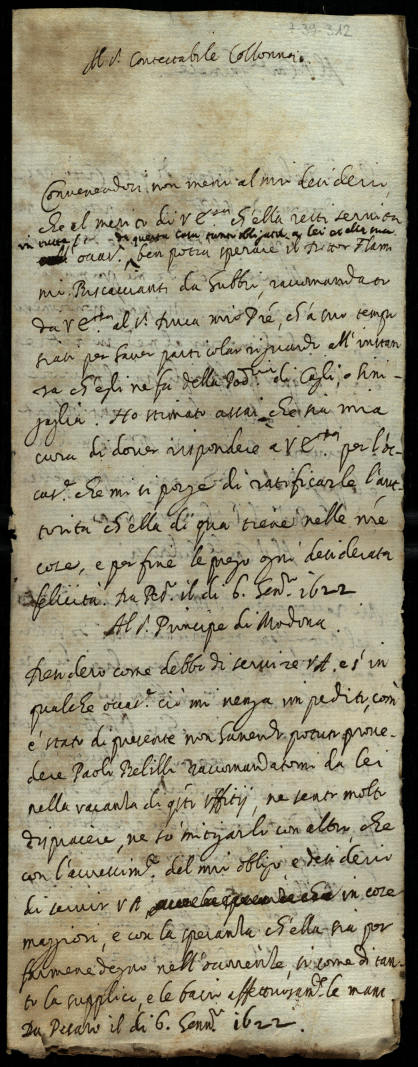 7-39-312
Al S.r Contestabile Collonna.
Convenendosi non meno al mio desiderio,
che al merito di V E ch'ella resti servita
in tutte di questa Casa tanto obligata a lei et alla sua
occas.ne ben potrà sperare il Dottor Flam
mi. Buscaccianti da Gubbio, raccomandato
da V E al S.r Duca mio P're, ch'a suo tempo
siasi per haver particolar riguardo all'instan
za ch'egli ne fa della Pod.ria di Cagli, o Sini-
gaglia. Ho stimato assai che sia mia
cura di dover rispondere a V E per l'oc-
cas.ne che mi si porge di ratificarle l'aut-
torità ch'ella di quà tiene nelle n're
cose, e per fine le prego ogni desiderata
felicità. Da Pes.o il dì 6. Genn.o 1622
Al S.r Principe di Modona.
Attendero come debbo di servire V A. e s'in
qualche occas.ne ciò mi venga impedito, com'
è stato di presente non havendo potuto prove-
dere Paolo Belilli raccomandatomi da lei
nella vacanza di q'sti Uffitij, ne sento molto
dispiacere, ne so mitigarlo con altro che
con l'accrescim.to del mio obligo e desiderio
di servir V A in cose
maggiori, e con la speranza ch'ella sia per
farmene degno nell'occorrenze, si come di tan-
to la supplico, e le bacio affettuosam.te le mani
Da Pesaro il dì 6. Genn.o 1622.